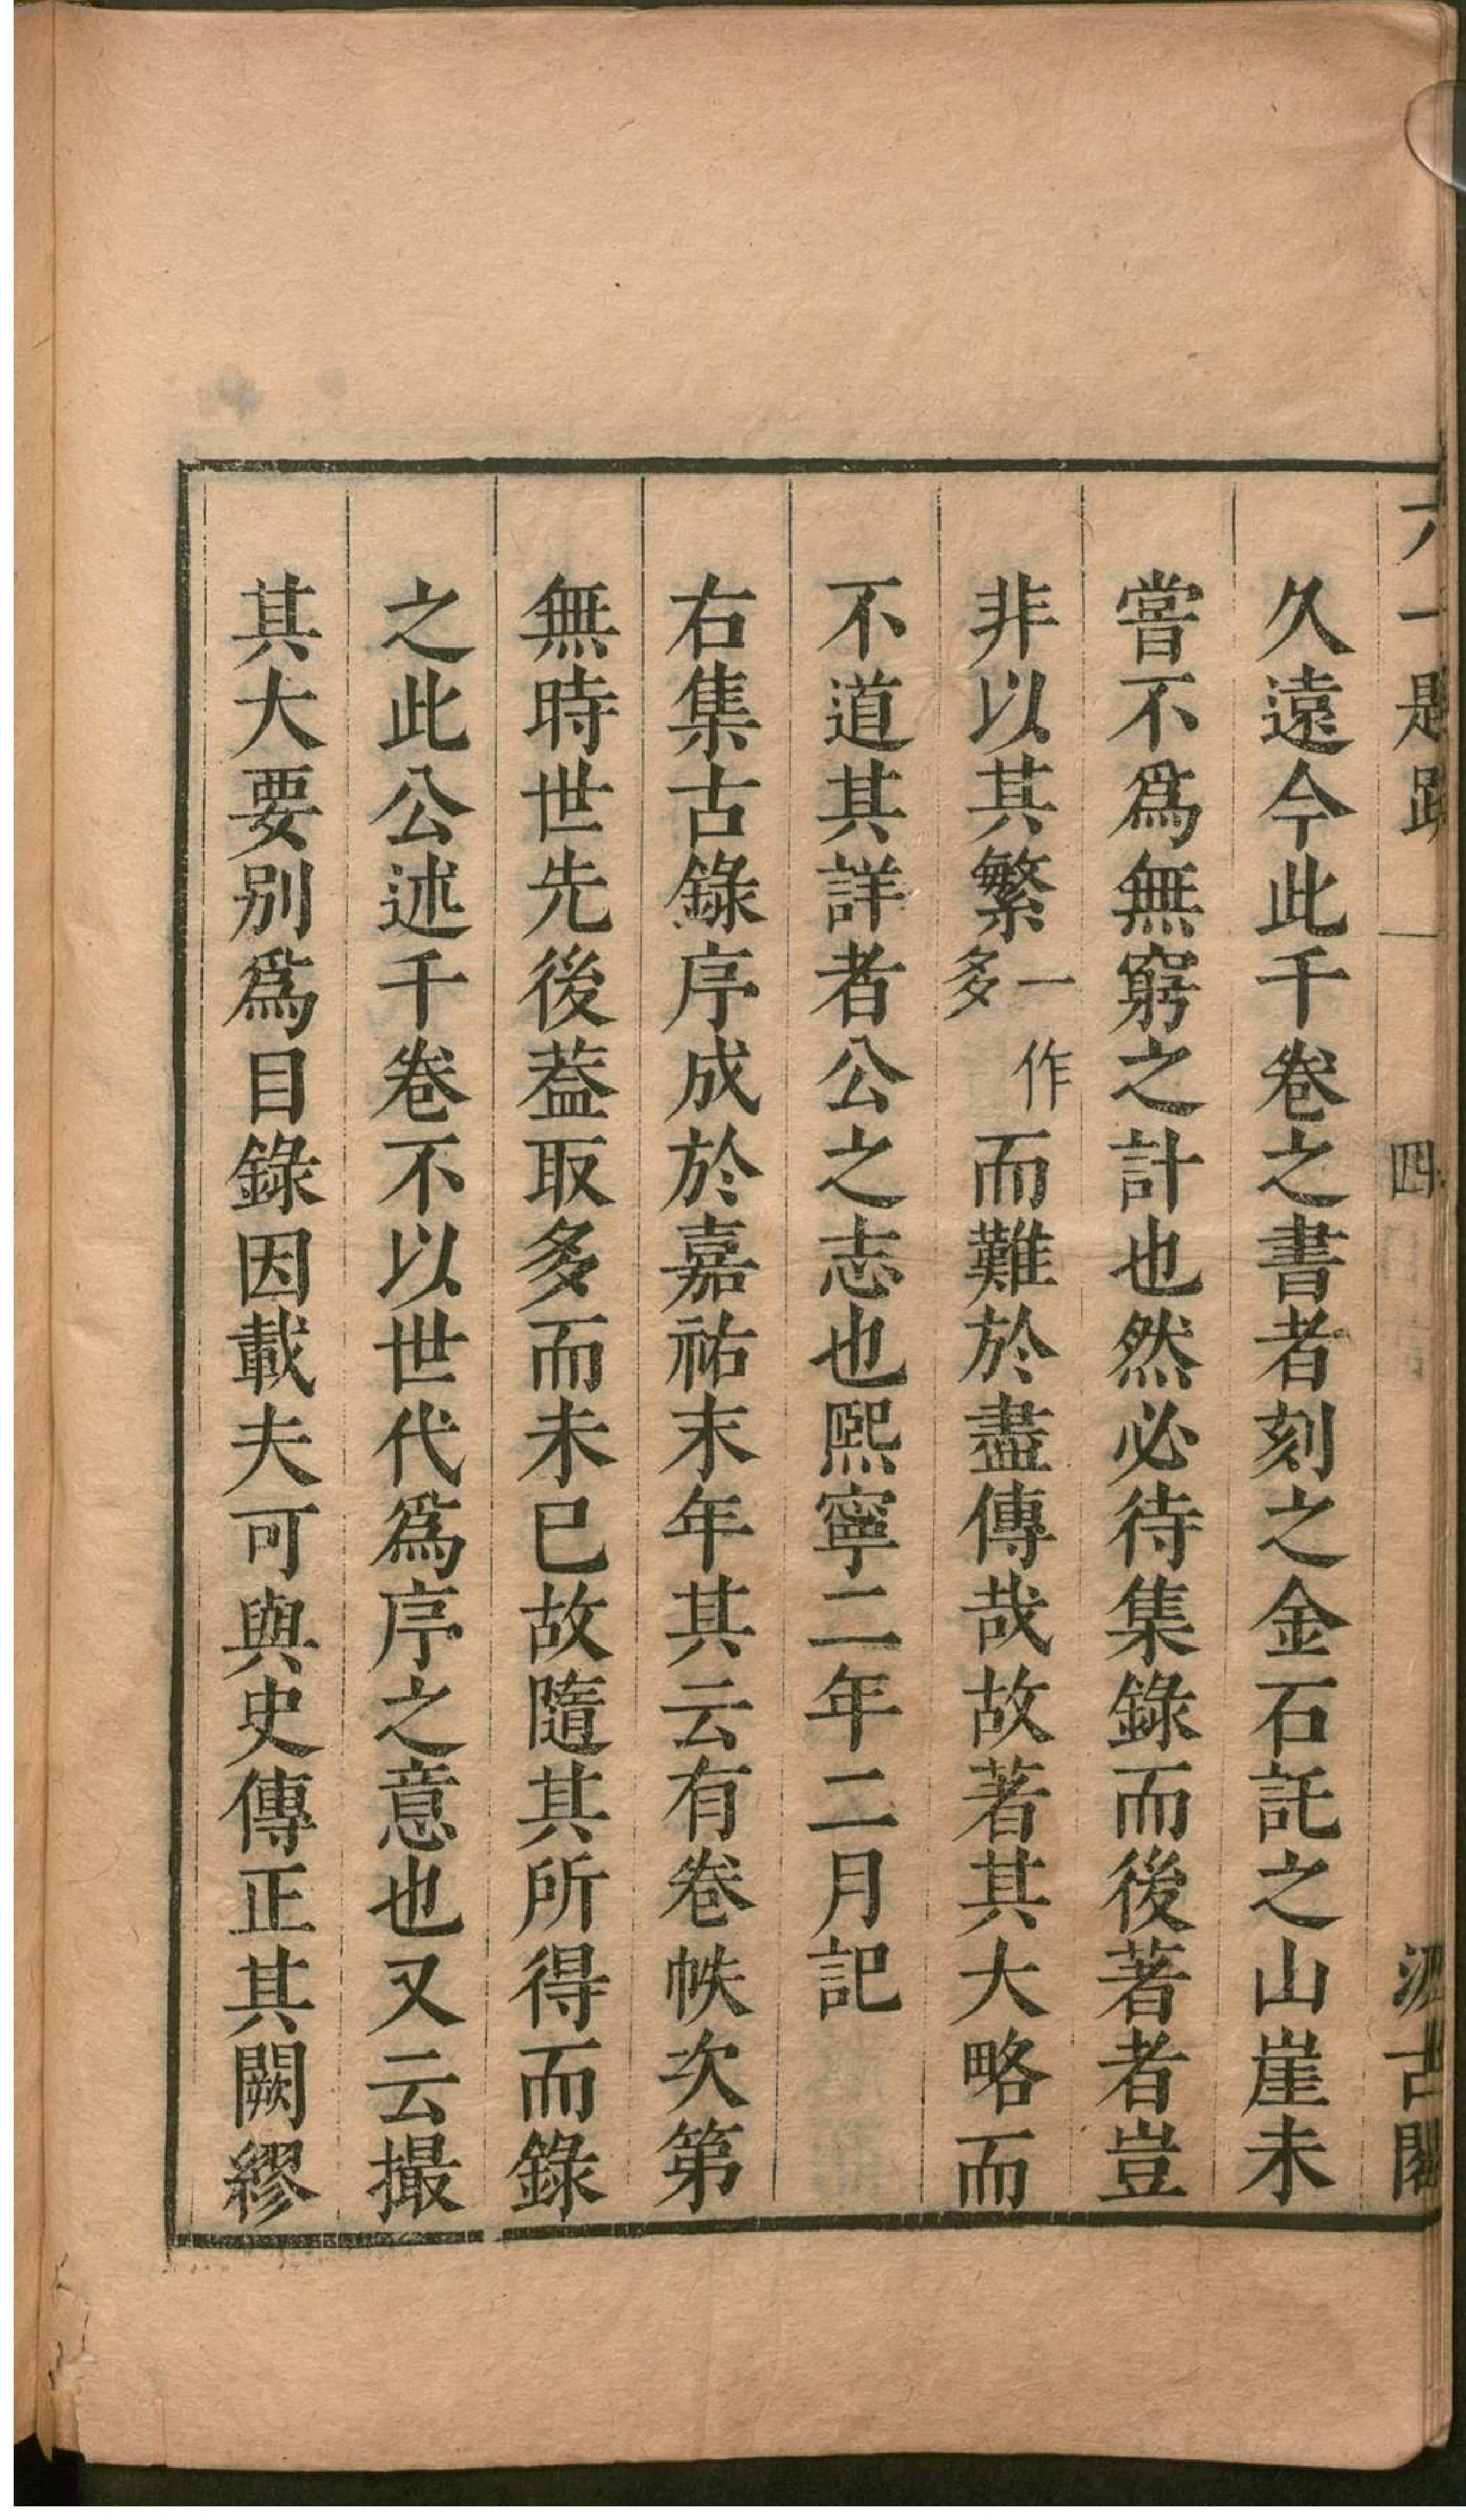 六一題跋 四 汲古閣
久遠今此千卷之書者刻之金石託之山崖未
嘗不爲無窮之計也然必待集錄而後著者豈
非以其繁一作多而難於盡傳哉故著其大略而
不道其詳者公之志也熈寧二年二月記
右集古錄序成於嘉祐末年其云有卷帙次第
無時世先後葢取多而未已故隨其所得而錄
之此公述千卷不以世代爲序之意也又云撮
其大要别爲目錄因載夫可與史傳正其闕繆